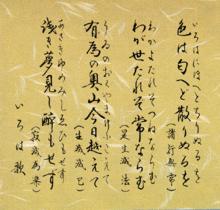 いろはにほへとちりぬるを
色は匂へど散りぬるを
(諸行無常)
わかよたれそつねならむ
わが世たれぞ常ならむ
(是生滅法)
うゐのおくやまけふこえて
有為の奥山今日越えて
(生滅滅已)
あさきゆめみしゑひもせす
浅き夢見じ酔もせず
(寂滅為楽)
いろは歌